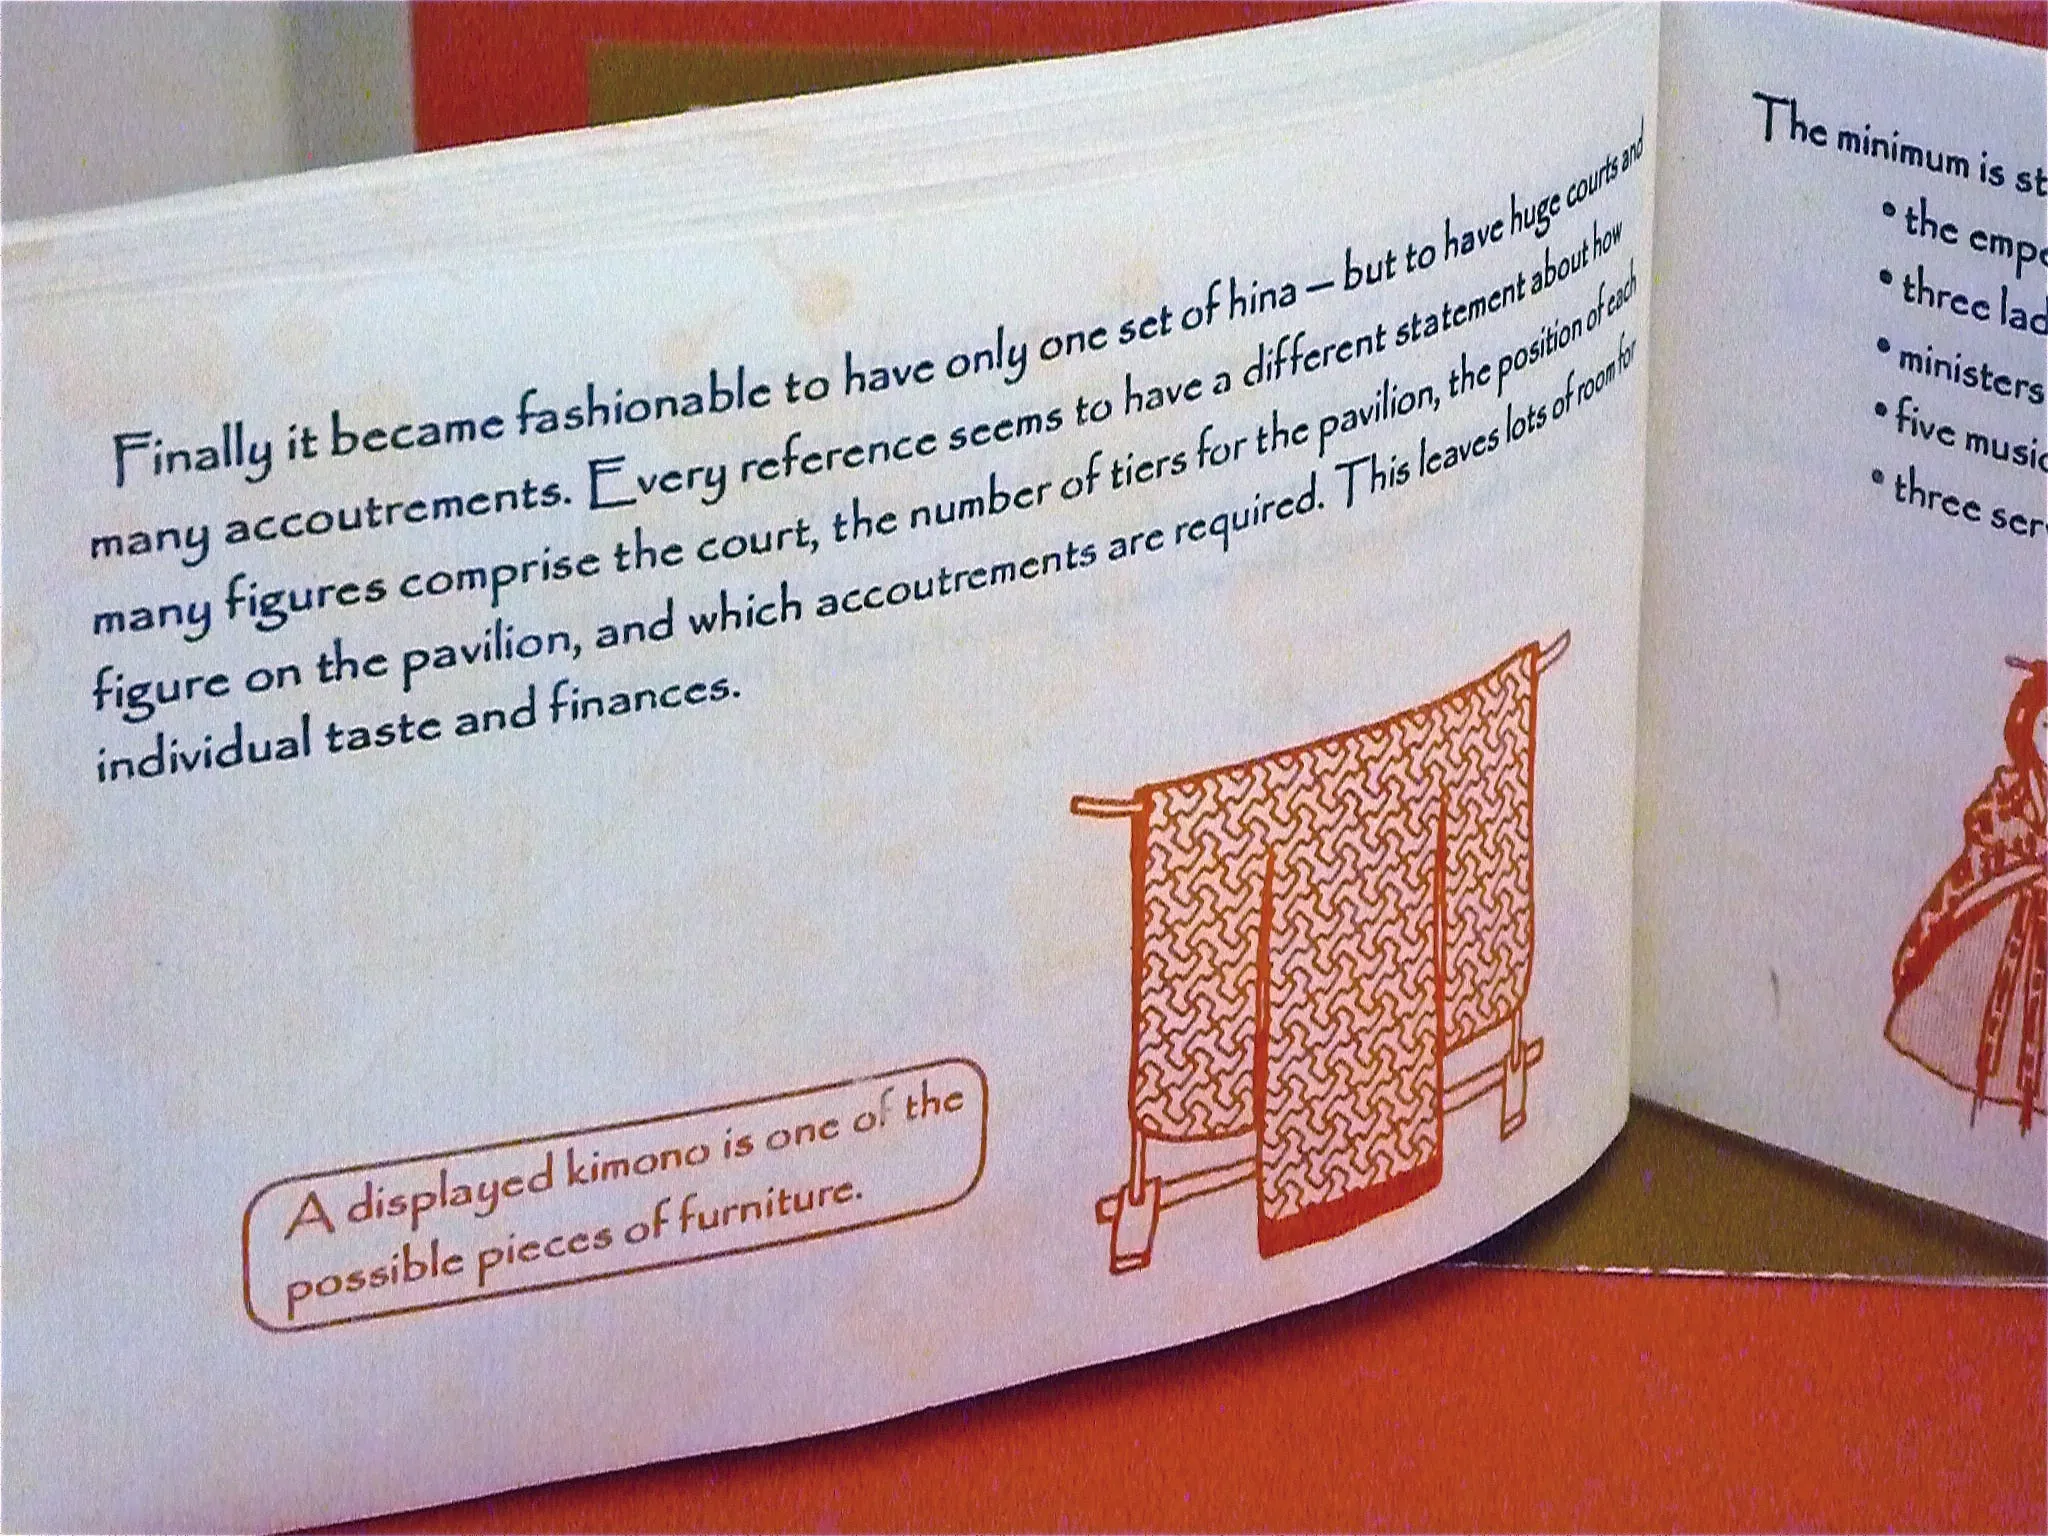 Finally it became fashionable to have only one set of hina – but to have huge courts and
many accoutrements. Every reference seems to have a different statement about how
many figures comprise the court, the number of tiers for the pavilion, the position of each
figure on the pavilion, and which accoutrements are required. This leaves lots of room for
individual taste and finances.
A displayed kimono is one of the
possible pieces of furniture.
The minimum is
• the
• three
• ministers
• five
• three